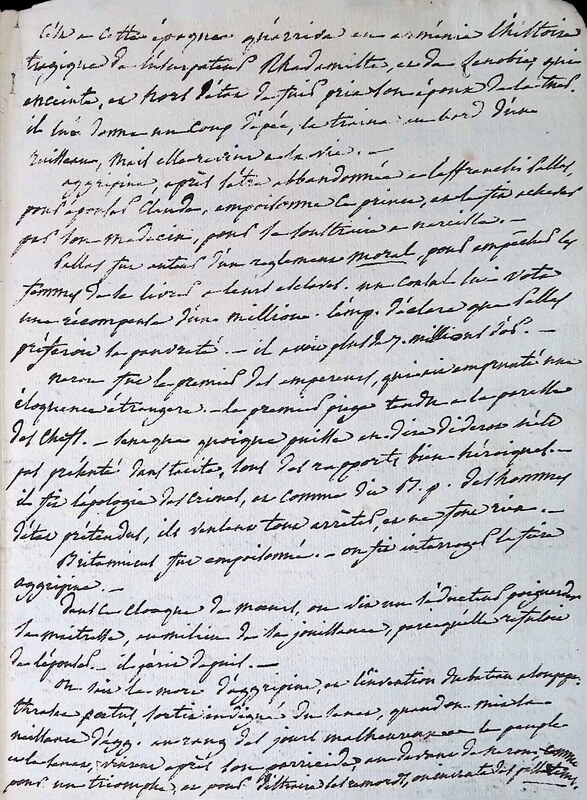 C'est a cette époque qu'arriva en arménie l'histoire
tragique de l'usurpateur Rhadamiste, et de Zenobie, que
enceinte, et hors d'état de fuir pria son époux de la tuer.
il lui donna un coup d'épée, la traina au bord d'un
ruisseau, mais elle revint a la vie. —
aggripine, après s'être abbandonnée a l'affranchi Pallas,
pour épouser Claude, empoisonna ce prince, et le fit achever
par son medecin, pour le soustraire a narcisse. —
Pallas fut auteur d'un reglement moral, pour empêcher les
femmes de se livrer a leurs esclaves. un consul lui vota
une récompense d'un million. l'emp. déclara que Pallas
préferoit la pauvreté. — il avoit plus de 7. millions d'or. —
neron fut le premier des empereurs, qui ait emprunté une
éloquence étrangere. — le premier piege tendu a la paresse
des chefs. — seneque quoique puisse en dire Diderot n'est
pas présenté dans tacite, sous des rapports bien héroiques. —
il fit l'apologie des crimes, et comme dit B. p. des hommes
d'état prétendus, ils veulent tout arrêter, et ne font rien. —
Britannicus fut empoisonné. — on fit interroger la fière
aggripine. —
Dans ce cloaque de moeurs, on vit un séducteur poignarder
sa maitresse, au milieu de sa jouissance, parcequ'elle refusoit
de l'épouser. — il périt depuis. —
On sait la mort d'aggripine, et l'invention du bateau a soupape.
thraséa poetus, sortit indigné du senat, quand on mit la
naissance d'agg. au rang des jours malheureux — le peuple
et le senat, vinrent après son parricide, au devant de neron comme
pour un triomphe, et pour détruire ses remords, on encensa